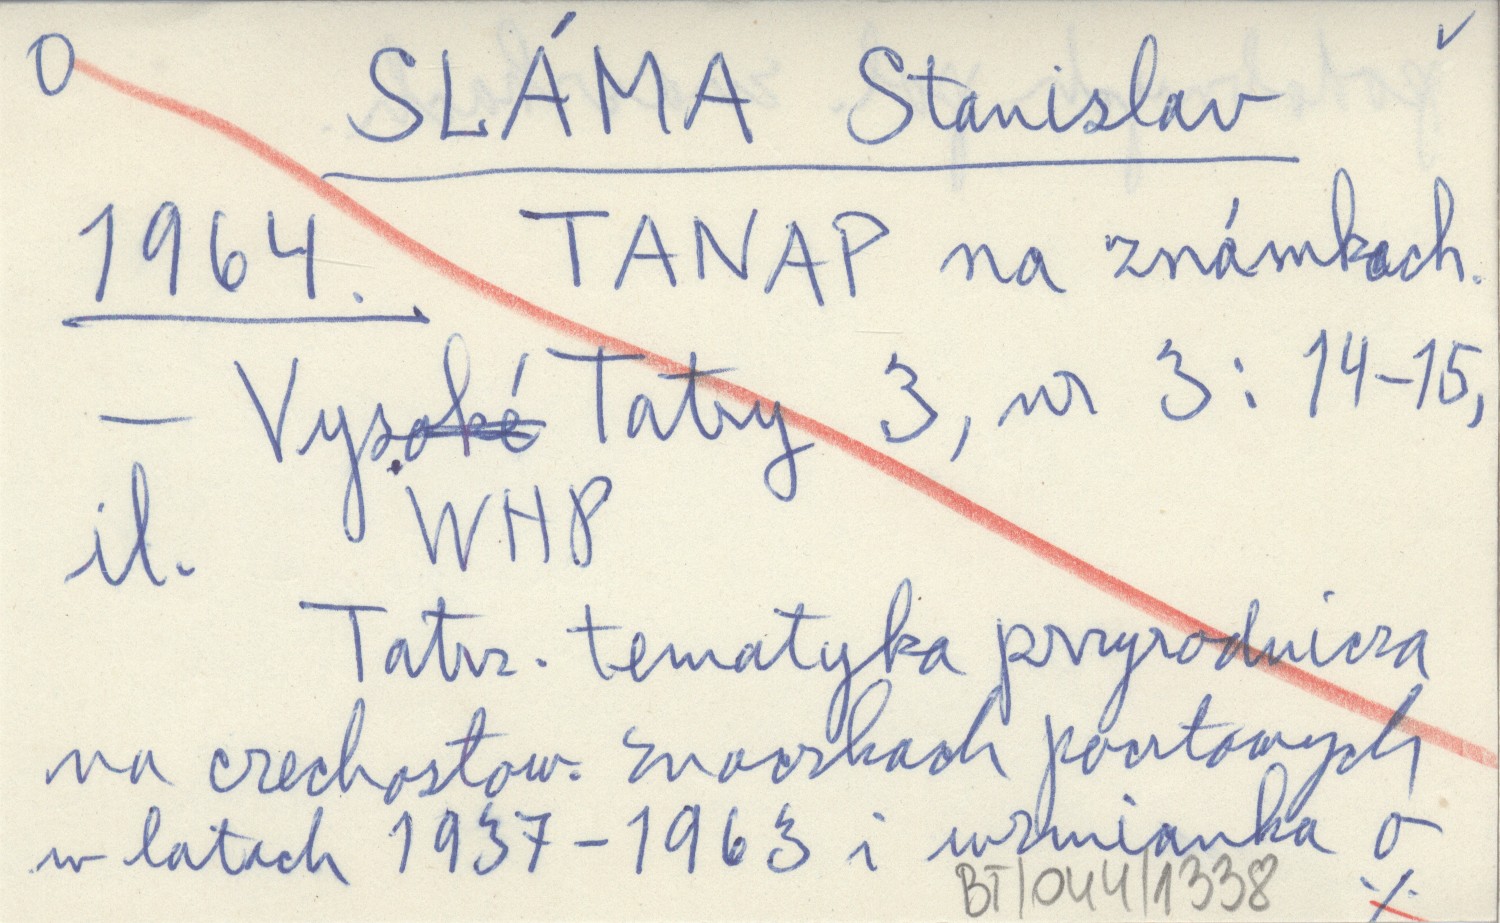 O SLÁMA Stanislav ✓
1964. TANAP na známkach.
— Vysoké Tatry 3, nr 3: 14-15,
il. WHP
Tatrz. tematyka przyrodnicza
na czechosłow. znaczkach pocztowych
w latach 1937-1963 i wzmianka o
BT/044/1338 ·/.